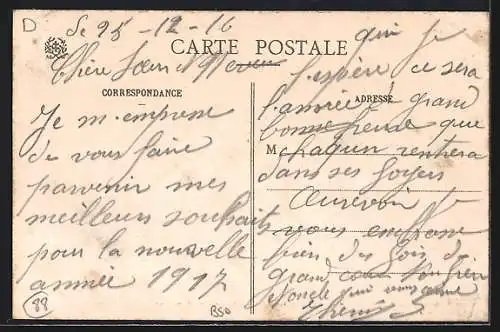 D
Le 25-12-16
CARTE POSTALE
Chère Sœur
CORRESPONDANCE
Je m'empresse
de vous faire
parvenir mes
meilleurs souhaits
pour la nouvelle
année 1917
88
B50
qui je
l'espère ce sera
l'année grand
ADRESSE
que
M
chaqun rentrera
dans ses foyers
Aurevoir je
vous embrasse
bien des fois
grand
qui vous aime